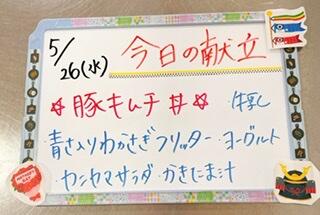 5/26(水) 今日の献立
☆豚キムチ丼☆ ・牛乳
・青さ入りわかさぎフリッター ・ヨーグルト
・ヤンヤマサラダ ・かきたま汁